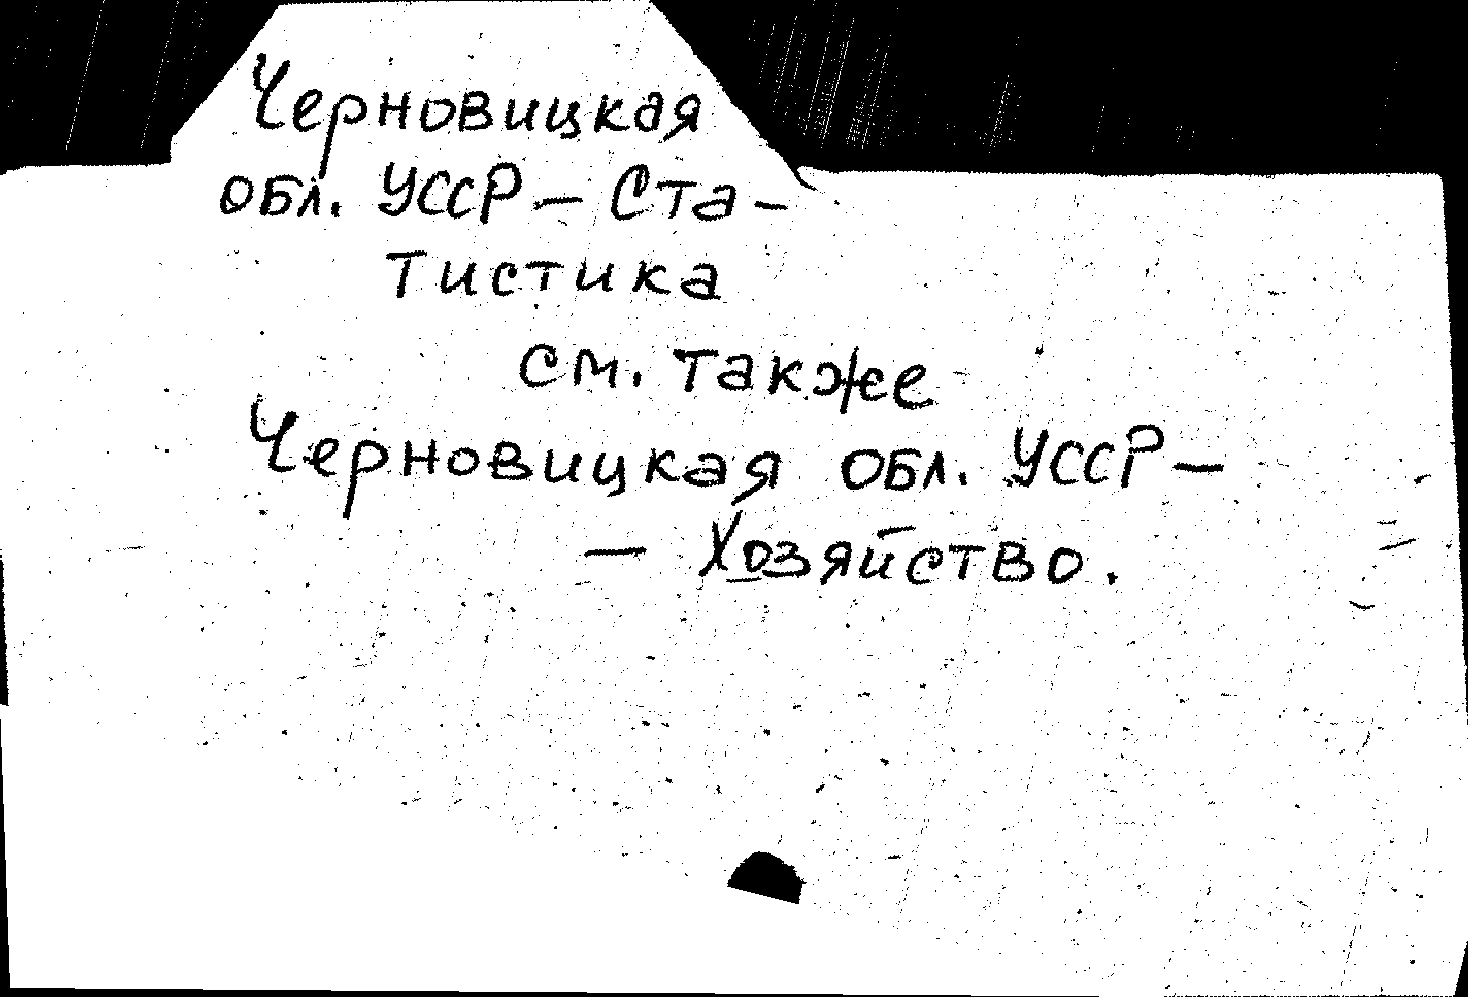 Черновицкая
обл. УССР – Ста-
тистика
см. также
Черновицкая обл. УССР –
– Хозяйство.